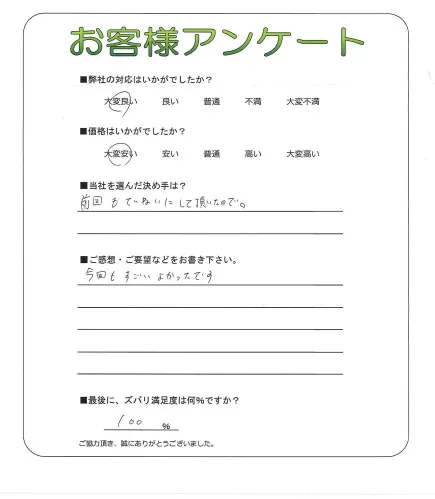 お客様アンケート
■弊社の対応はいかがでしたか？
大変良い 良い 普通 不満 大変不満
■価格はいかがでしたか？
大変安い 安い 普通 高い 大変高い
■当社を選んだ決め手は？
前回もていねいにして頂いたので。
■ご感想・ご要望などをお書き下さい。
今回もすごいよかったです
■最後に、ズバリ満足度は何％ですか？
100 ％
ご協力頂き、誠にありがとうございました。